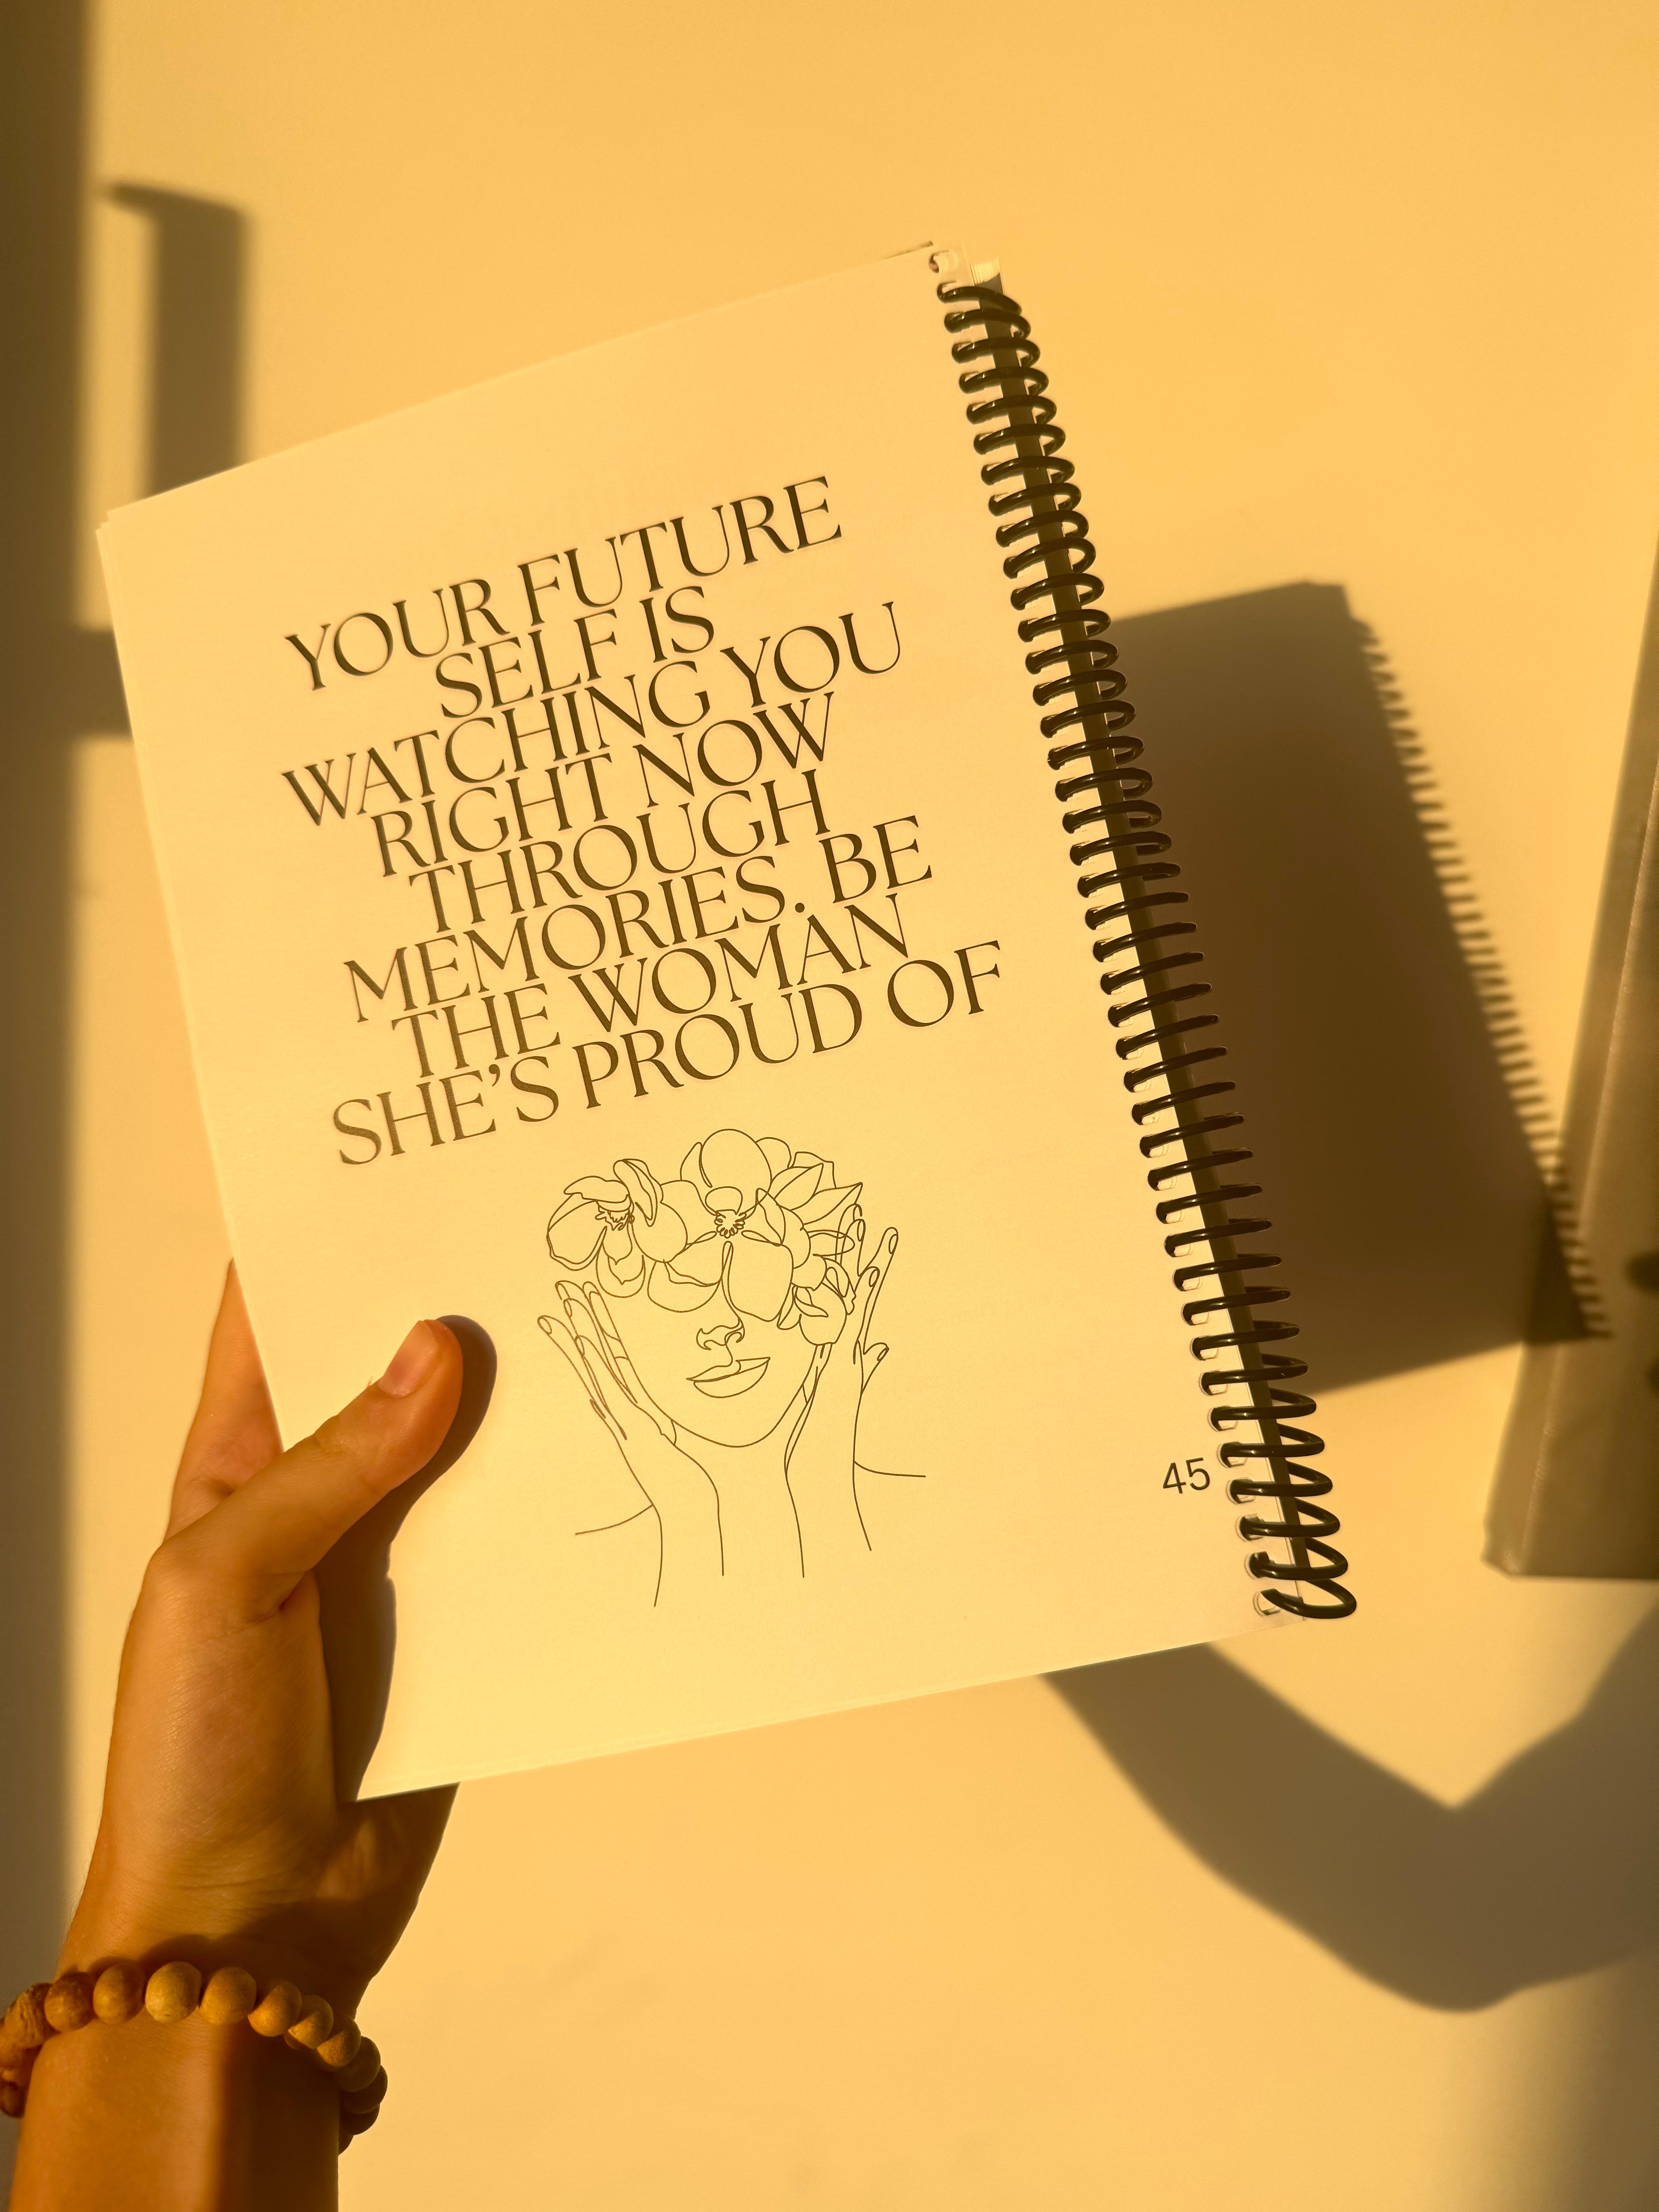 YOUR FUTURE
SELF IS
WATCHING YOU
RIGHT NOW
THROUGH
MEMORIES. BE
THE WOMAN
SHE’S PROUD OF
45